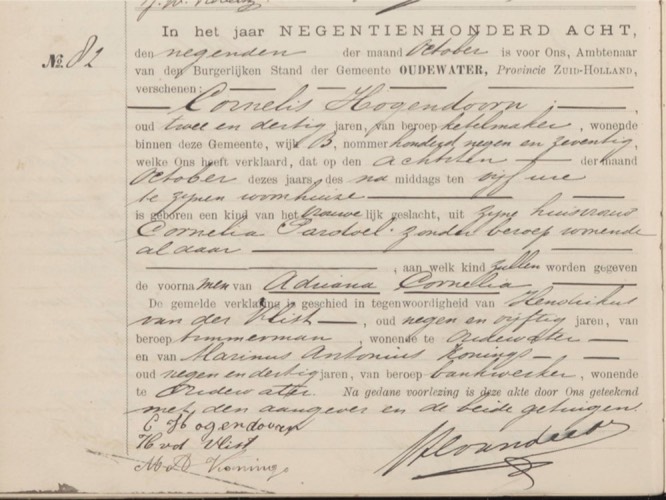 In het jaar NEGENTIENHONDERD ACHT,
No. 82
den negenden der maand October is voor Ons, Ambtenaar
van den Burgerlijken Stand der Gemeente OUDEWATER, Provincie ZUID-HOLLAND,
verschenen:
Cornelis Hogendoorn
oud twee en dertig jaren, van beroep ketelmaker, wonende
binnen deze Gemeente, wijk B, nommer honderd negen en zeventig,
welke Ons heeft verklaard, dat op den achtsten der maand
October dezes jaars, des na middags ten vijf ure
te zijnen woonhuize
is geboren een kind van het vrouwelijk geslacht, uit zijne huisvrouw
Cornelia Pardoel zonder beroep wonende
aldaar
, aan welk kind zullen worden gegeven
de voornamen van Adriana Cornelia
De gemelde verklaring is geschied in tegenwoordigheid van Hendrikus
van der Vlist, oud negen en vijftig jaren, van
beroep timmerman, wonende te Oudewater
en van Marinus Antonius Konings
oud negen en dertig jaren, van beroep bankwerker, wonende
te Oudewater. Na gedane voorlezing is deze akte door Ons geteekend
met den aangever en de beide getuigen
C Hogendoorn
H vd Vlist
M A Konings